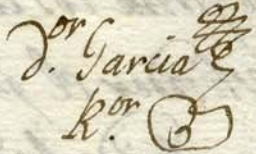 D.or Garcia
R.or